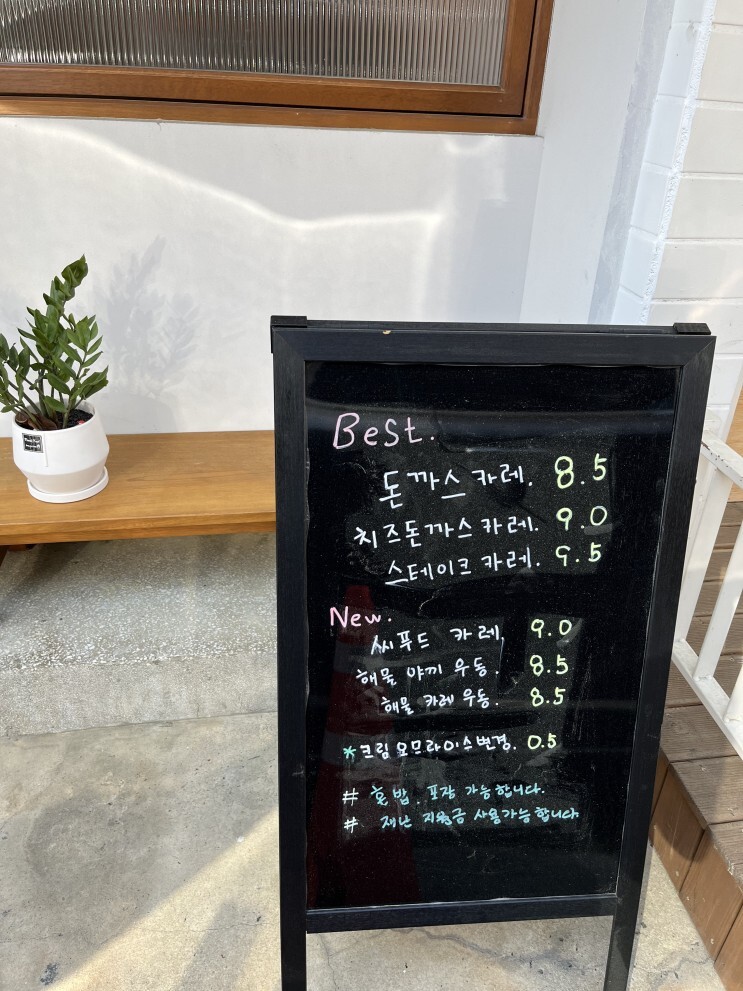 Best.
돈까스 카레. 8.5
치즈돈까스 카레. 9.0
스테이크 카레. 9.5
New.
씨푸드 카레. 9.0
해물 야끼 우동. 8.5
해물 카레 우동. 8.5
*크림오므라이스변경. 0.5
# 혼밥. 포장 가능합니다.
# 재난 지원금 사용가능합니다